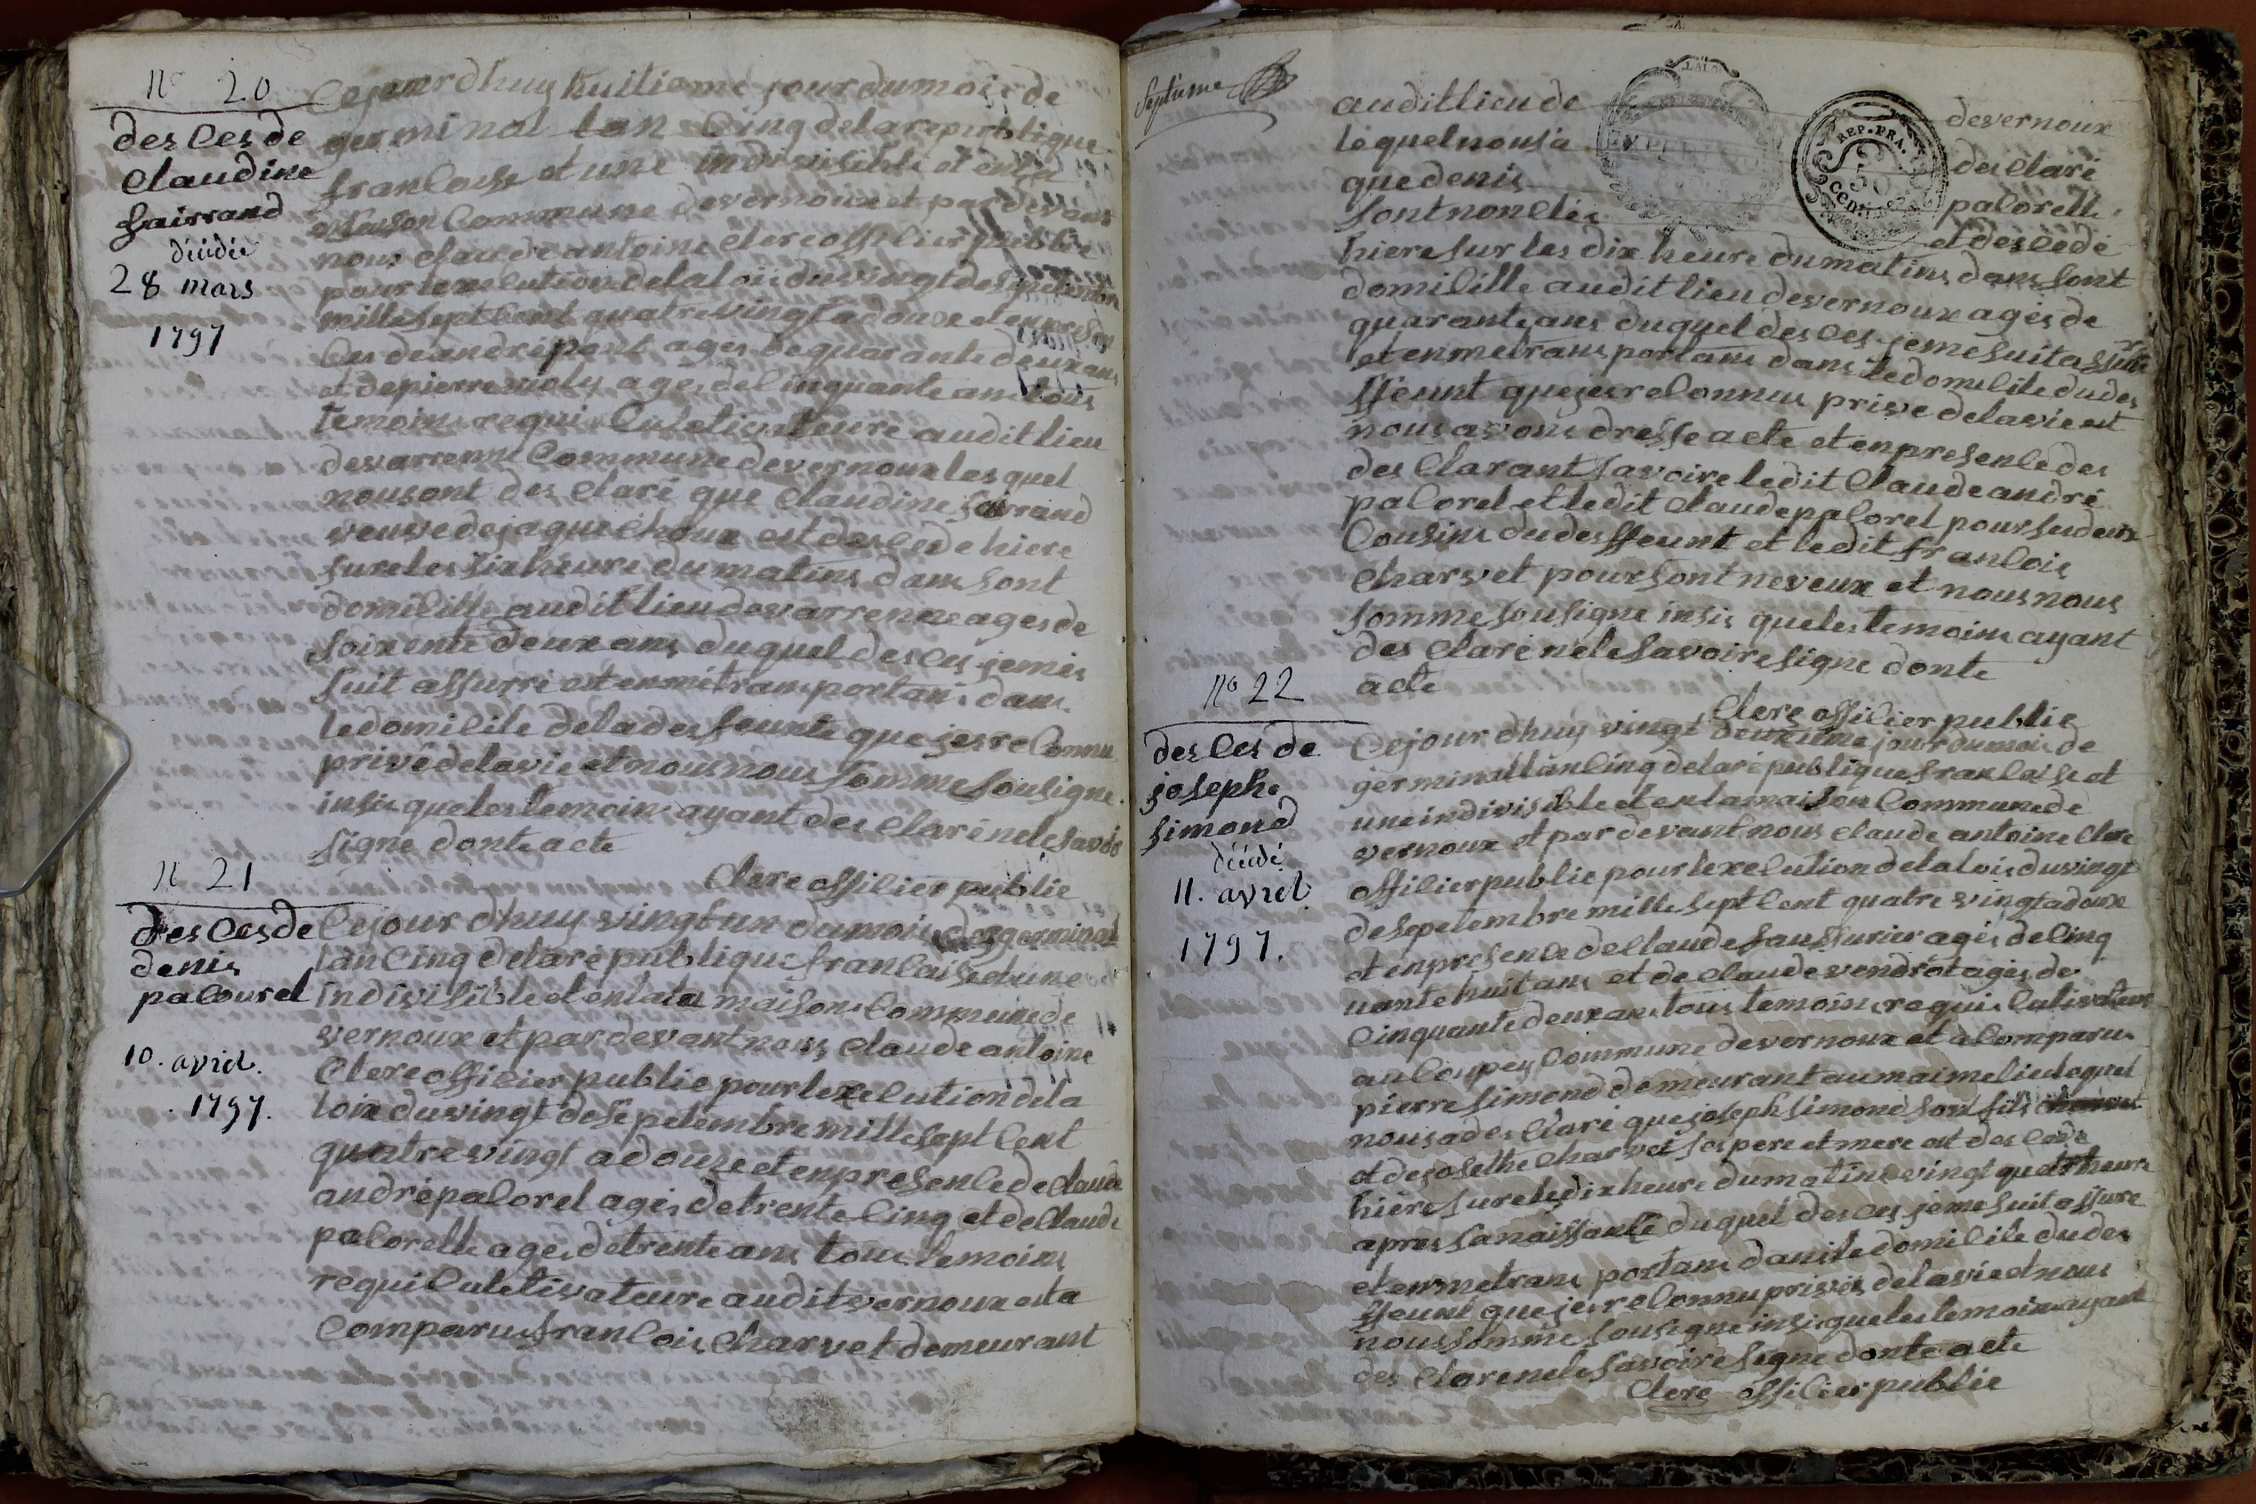 No 20
des Ces de
Claudine
fairrand
décidée
28 mars
1797
Cejourdhuy huitieme jour dumois de
germinal lan Cinq delarepublique
francoise et une indivisible et enla
Maison Commune devernoux et pardevant
nous claude antoine Clere offilier public
pour lexelution delaloi duvingt desepetembre
mille sept Cent quatre vingt adouze et enpresen
Ces deandré petit ages de quarante deux ans
et depierre violy ages de Cinquante ans tous
temoins requis Culetivateure audit lieu
devarrenne Commune devernoux lesquel
nousont des Claré que Claudine farrand
veuve dejaque choux est des Cede hiere
sure les six heure dumatins dans sont
domilille audit lieu devarrenne ages de
soixente deux ans duquel des Ces jemes
suit assurré et enmetransportans dans
ledomilile delades feunte que jesreConnu
privé delavie et nous nous somme sousigne
insis queles temoins ayant des Claré nele savoir
signe donte acte
Clere offilier publie
N 21
des Ces de
denis
paCourel
10. avril.
1797.
Cejour dhuy vingt un dumois de germinal
lan Cinq delarepublique francaise et une
indivisible et enlata maison Commune de
vernoux et pardevant nous Claude antoine
Clere offilier publie pour lexelution dela
loix duvingt desepetembre mille sept Cent
quatre vingt adouze et enpresenle de Claude
andré palorel ages de trente Cinq et de Claude
palorelle ages de trente ans tous temoins
requi Culetivateure audit vernoux et a
Comparu francois Charvet demeurant
Septieme
audit lieu de devernoux
lequel nous a des Claré
que denis palorelle
sont noncles et des cede
hiere sur les dix heure dumatins dans sont
domilille audit lieu devernoux ages de
quarante ans duquel des Ces jeme suit assure
et enmetransportans dans ledomilile dudes
ffeunt que jesreConnus prive delavie et
nous avons dresse acte et enpresenle des
des Clarant savoire ledit Claude andré
palorel et ledit Claude palorel pour su deux
Cousins dudes ffeunt et ledit francois
Charvet pour sont neveux et nous nous
somme sousigne insis que les temoins ayant
des Claré nele savoire signe donte
acte
Clere offilier publie
No 22
des Ces de
joseph
simond
décidé
11. avril
1797.
Cejour dhuy vingt deuxieme jour dumois de
germinal lan Cinq delarepublique francaise et
une indivisible et enlamaison Commune de
vernoux et pardevant nous Claude antoine Clere
offilier publie pour lexelution delalois duvingt
desepetembre mille sept Cent quatre vingt adouze
et enpresenle de Claude saussurier ages de Cinq
uante huit ans et de Claude vendrot ages de
Cinquante deux ans tous temoins requi Culivateur
au Coupey Commune devernoux et a Comparu
pierre simond demeurant au maime lieu lequel
nous a des Claré que joseph simond son fils
et dejosethe Charvet ses pere et mere est des Cede
hiere sure les dix heure dumatins vingt quatre heure
apres sa naissanse duquel des Ces jeme suit assure
et enmetransportans dans le domilile dudes
ffeunt que jesreConnu prives delavie et nous
nous somme sousigne insis queles temoins ayant
des Claré nele savoire signe donte acte
Clere offilier publie
REP. FRA.
50
CENTIMES